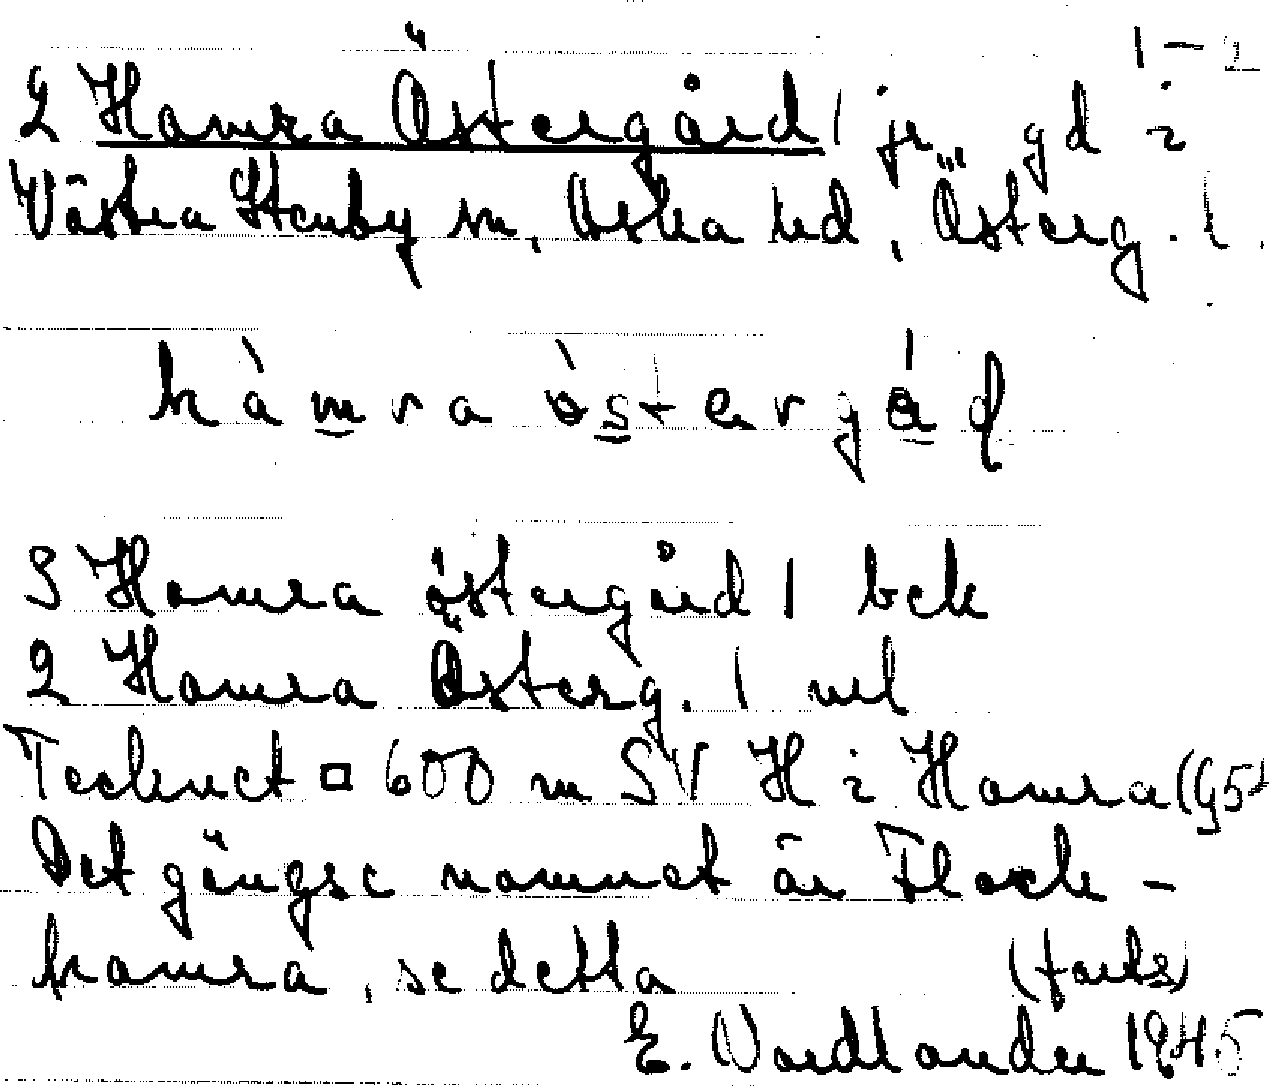 1–2
2 Hamra Östergård 1 jr, gd i
Västra Stenby sn, Aska hd, Österg. l.
hàmra òstergár̨d
S Hamra östergård 1 bek
2 Hamra Österg. 1 ml
Tecknet □ 600 m SV H i Hamra (G5
Det gängse namnet är Flack-
hamra, se detta (forts)
E. Nordlander 1945